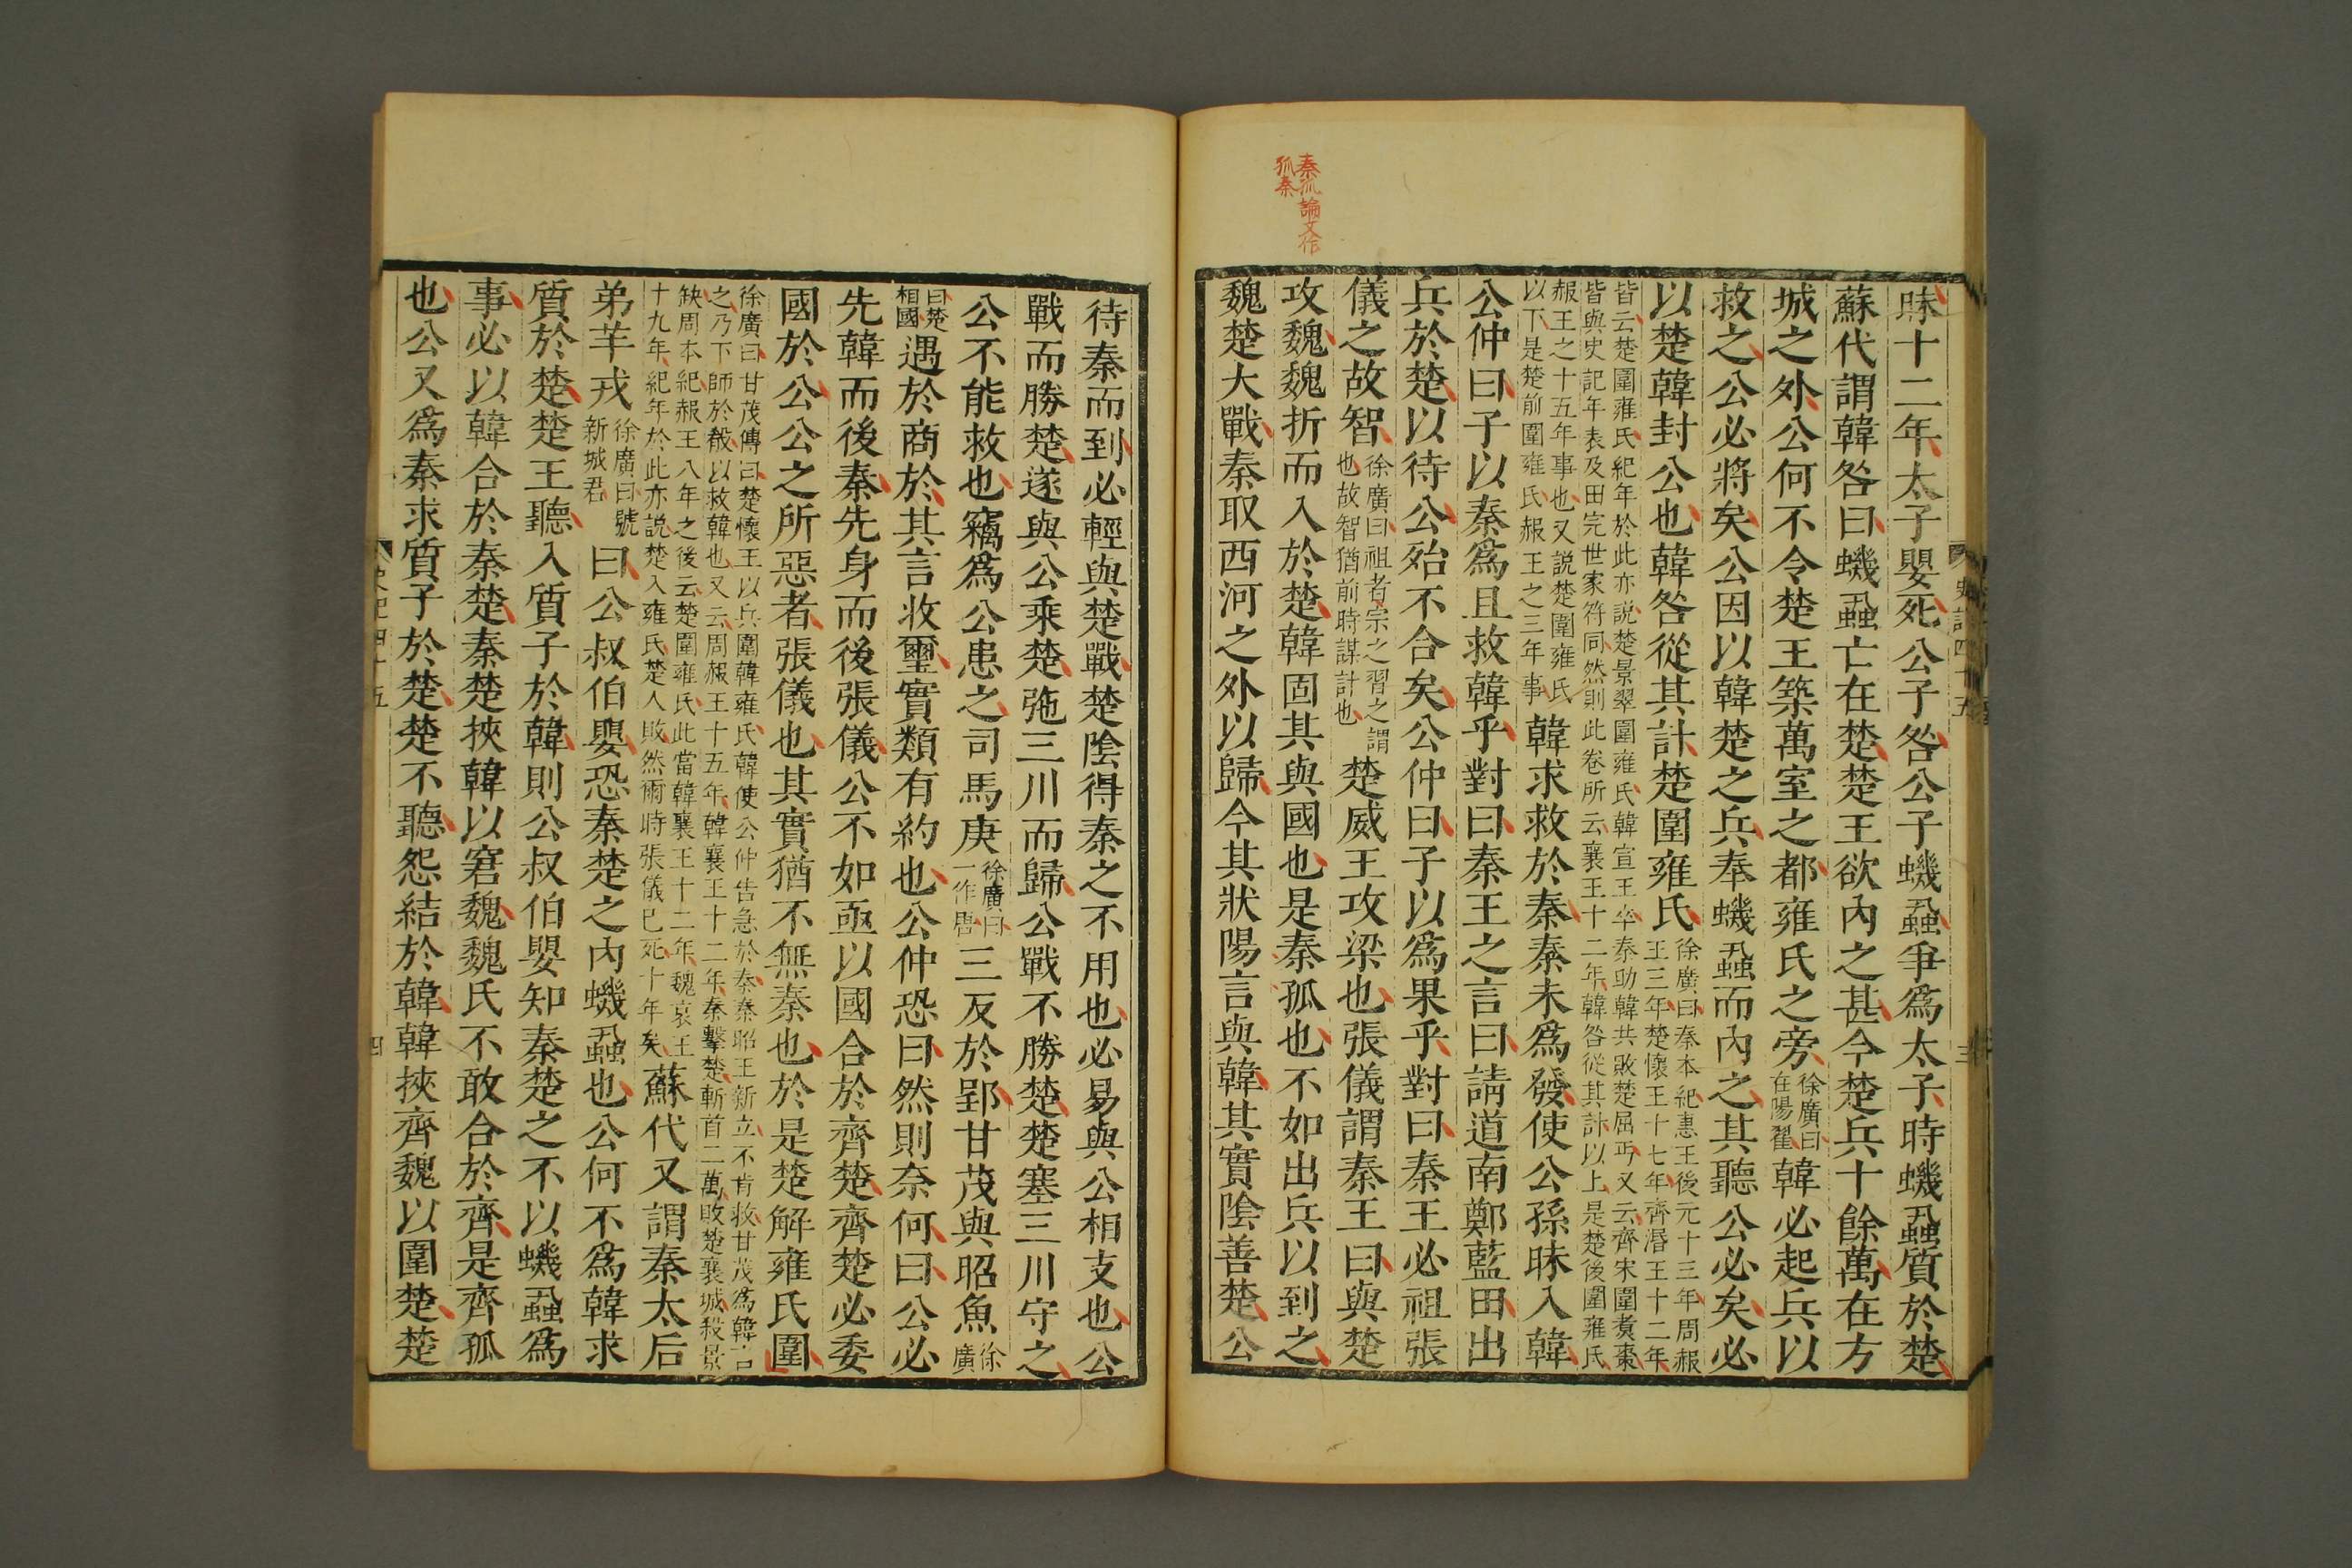 昧十二年太子嬰死公子咎公子蟣蝨爭爲太子時蟣蝨質於楚
蘇代謂韓咎曰蟣蝨亡在楚楚王欲內之甚今楚兵十餘萬在方
城之外公何不令楚王築萬室之都雍氏之旁徐廣曰在陽翟韓必起兵以
救之公必將矣公因以韓楚之兵奉蟣蝨而內之其聽公必矣必
以楚韓封公也韓咎從其計楚圍雍氏徐廣曰秦本紀惠王後元十三年周赧王三年楚懷王十七年齊湣王十二年
皆云楚圍雍氏紀年於此亦説楚景翠圍雍氏韓宣王卒秦助韓共敗楚屈丐又云齊宋圍煑棗
皆與史記年表及田完世家符同然則此卷所云襄王十二年韓咎從其計以上是楚後圍雍氏
赧王之十五年事也又説楚圍雍氏以下是楚前圍雍氏赧王之三年事韓求救於秦秦未爲發使公孫昧入韓
公仲曰子以秦爲且救韓乎對曰秦王之言曰請道南鄭藍田出
兵於楚以待公殆不合矣公仲曰子以爲果乎對曰秦王必祖張
儀之故智徐廣曰祖者宗之習之謂也故智猶前時謀計也楚威王攻梁也張儀謂秦王曰與楚
攻魏魏折而入於楚韓固其與國也是秦孤也不如出兵以到之
魏楚大戰秦取西河之外以歸今其狀陽言與韓其實陰善楚公
秦孤論文作
孤秦
史記四十五
三
待秦而到必輕與楚戰楚陰得秦之不用也必易與公相支也公
戰而勝楚遂與公乘楚施三川而歸公戰不勝楚楚塞三川守之
公不能救也竊爲公患之司馬庚徐廣曰一作唐三反於郢甘茂與昭魚徐廣
曰楚相國遇於商於其言收璽實類有約也公仲恐曰然則奈何曰公必
先韓而後秦先身而後張儀公不如亟以國合於齊楚齊楚必委
國於公公之所惡者張儀也其實猶不無秦也於是楚解雍氏圍
徐廣曰甘茂傳曰楚懷王以兵圍韓雍氏韓使公仲告急於秦秦昭王新立不肯救甘茂爲韓言
之乃下師於殽以救韓也又云周赧王十五年韓襄王十二年秦擊楚斬首二萬敗楚襄城殺景
缺周本紀赧王八年之後云楚圍雍氏此當韓襄王十二年魏哀王
十九年紀年於此亦説楚入雍氏楚人敗然爾時張儀已死十年矣蘇代又謂秦太后
弟羋戎徐廣曰號新城君曰公叔伯嬰恐秦楚之內蟣蝨也公何不爲韓求
質於楚楚王聽入質子於韓則公叔伯嬰知秦楚之不以蟣蝨爲
事必以韓合於秦楚秦楚挾韓以窘魏魏氏不敢合於齊是齊孤
也公又爲秦求質子於楚楚不聽怨結於韓韓挾齊魏以圍楚楚
史記四十五
四